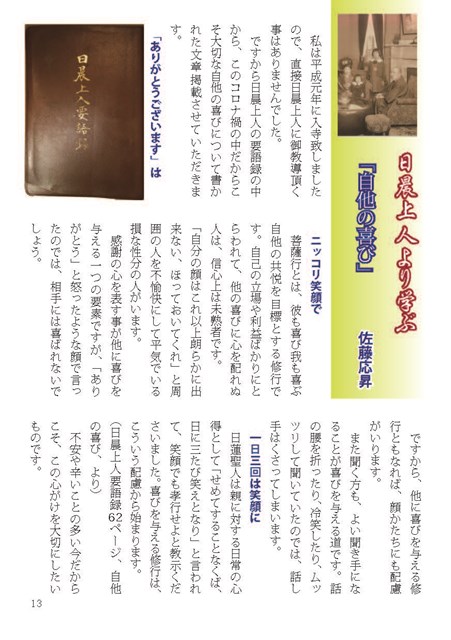 日晨上人より学ぶ
『自他の喜び』
佐藤応昇
日晨上人要語録
私は平成元年に入寺致しました
ので、直接日晨上人に御教導頂く
事はありませんでした。
ですから日晨上人の要語録の中
から、このコロナ禍の中だからこ
そ大切な自他の喜びについて書か
れた文章掲載させていただきま
す。
「ありがとうございます」は
ニッコリ笑顔で
菩薩行とは、彼も喜び我も喜ぶ
自他の共悦を目標とする修行で
す。自己の立場や利益ばかりにと
らわれて、他の喜びに心を配れぬ
人は、信心上は未熟者です。
「自分の顔はこれ以上朗らかに出
来ない、ほっておいてくれ」と周
囲の人を不愉快にして平気でいる
損な性分の人がいます。
感謝の心を表す事が他に喜びを
与える一つの要素ですが、「あり
がとう」と怒ったような顔で言っ
たのでは、相手には喜ばれないで
しょう。
ですから、他に喜びを与える修
行ともなれば、顔かたちにも配慮
がいります。
また聞く方も、よい聞き手にな
ることが喜びを与える道です。話
の腰を折ったり、冷笑したり、ムッ
ツリして聞いていたのでは、話し
手はくさってしまいます。
一日三回は笑顔に
日蓮聖人は親に対する日常の心
得として「せめてすることなくば、
日に三たび笑えとなり」と言われ
て、笑顔でも孝行せよと教示くだ
さいました。喜びを与える修行は、
こういう配慮から始まります。
（日晨上人要語録62ページ、自他
の喜び、より）
不安や辛いことの多い今だから
こそ、この心がけを大切にしたい
ものです。
13